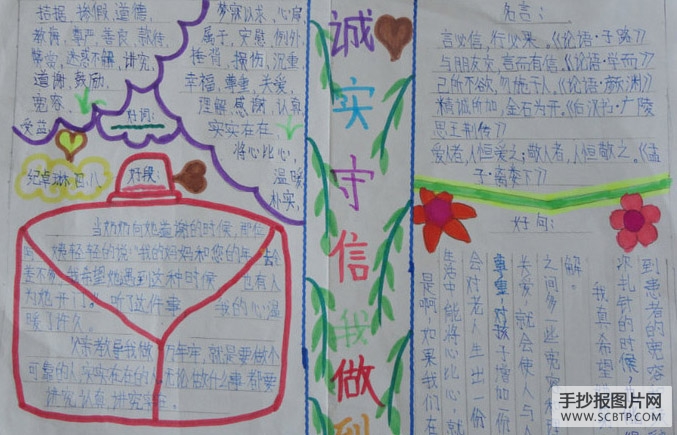 拮据、掺假、道德、
教育、尊严、善良、款待、
禁忌、迷惑不解、讲究、
道谢、鼓励、
宽容、
受益
好词：
梦寐以求、心扉
属于、安慰、例外
捶背、损伤、沉重
幸福、尊重、关爱、
理解、感谢、认真
实实在在、
将心比心、
温暖
朴实、
纪卓琳 四八
好段：
当奶奶向她道谢的时候，那位
阿姨轻轻的说：“我的妈妈和您的年龄
差不多，我希望她遇到这种时候，也有人
为她开门。”听了这件事，我的心温
暖了许久。
父亲教导我做万年牢，就是要做个
可靠的人，实实在在的人。无论做什么事，都要
讲究认真，讲究实在。
诚实守信我做到
名言：
言必信，行必果。《论语·子路》
与朋友交，言而有信。《论语·学而》
己所不欲，勿施于人。《论语·颜渊》
精诚所加，金石为开。《后汉书·广陵
思王荆传》
爱人者，人恒爱之；敬人者，人恒敬之。《孟
子·离娄下》
好句：
到患者的宽容
次扎针的时候
我真希望
解。
之间多些宽容
关爱，就会使人与人
尊重，对孩子增加一份
会对老人生出一份
生活中能将心比心，就
是啊，如果我们在
手抄报图片网
WWW.SCBTP.COM